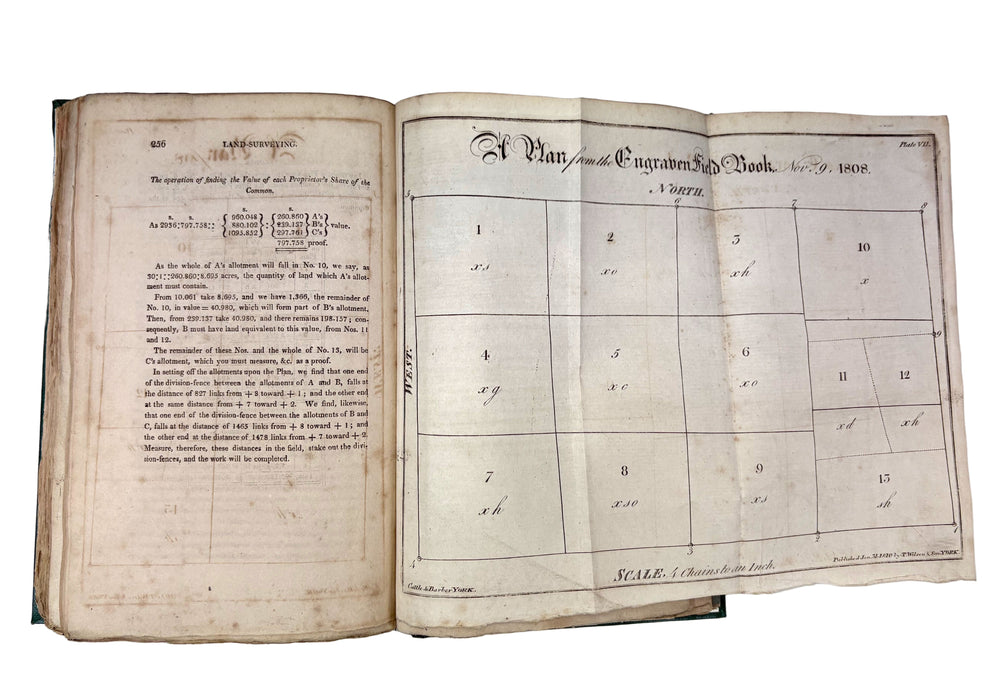 256 LAND-SURVEYING.
The operation of finding the Value of each Proprietor's Share of the
Common.
s. s. s. s.
As 2936:797.758:: { 960.048 } : { 260.860 } A's }
{ 880.102 } : { 239.137 } B's } value.
{ 1095.852 } { 297.761 } C's }
797.758 proof.
As the whole of A's allotment will fall in No. 10, we say, as
30:1::260.860:8.695 acres, the quantity of land which A's allot-
ment must contain.
From 10.061 take 8.695, and we have 1.366, the remainder of
No. 10, in value = 40.980, which will form part of B's allotment,
Then, from 239.137 take 40.980, and there remains 198.157; con-
sequently, B must have land equivalent to this value, from Nos. 11
and 12.
The remainder of these Nos. and the whole of No. 13, will be
C's allotment, which you must measure, &c. as a proof.
In setting off the allotments upon the Plan, we find that one end
of the division-fence between the allotments of A and B, falls at
the distance of 827 links from + 8 toward + 1; and the other end
at the same distance from + 7 toward + 2. We find, likewise,
that one end of the division-fence between the allotments of B and
C, falls at the distance of 1465 links from + 8 toward + 1; and
the other end at the distance of 1478 links from + 7 toward + 2.
Measure, therefore, these distances in the field, stake out the divi-
sion-fences, and the work will be completed.
Plate VII.
A Plan from the Engraven Field Book, Nov. 9, 1808.
NORTH.
5 6 7 8
1 2 3 10
xs xo xh x
9
WEST.
4 5 6 11 12
xg xc xo xd xh
7 8 9 13
xh xso xs sh
4 3 2 1
SCALE 4 Chains to an Inch.
Cattle & Barber YORK.
Published Jan. 31, 1810 by T. Wilson & Son YORK.